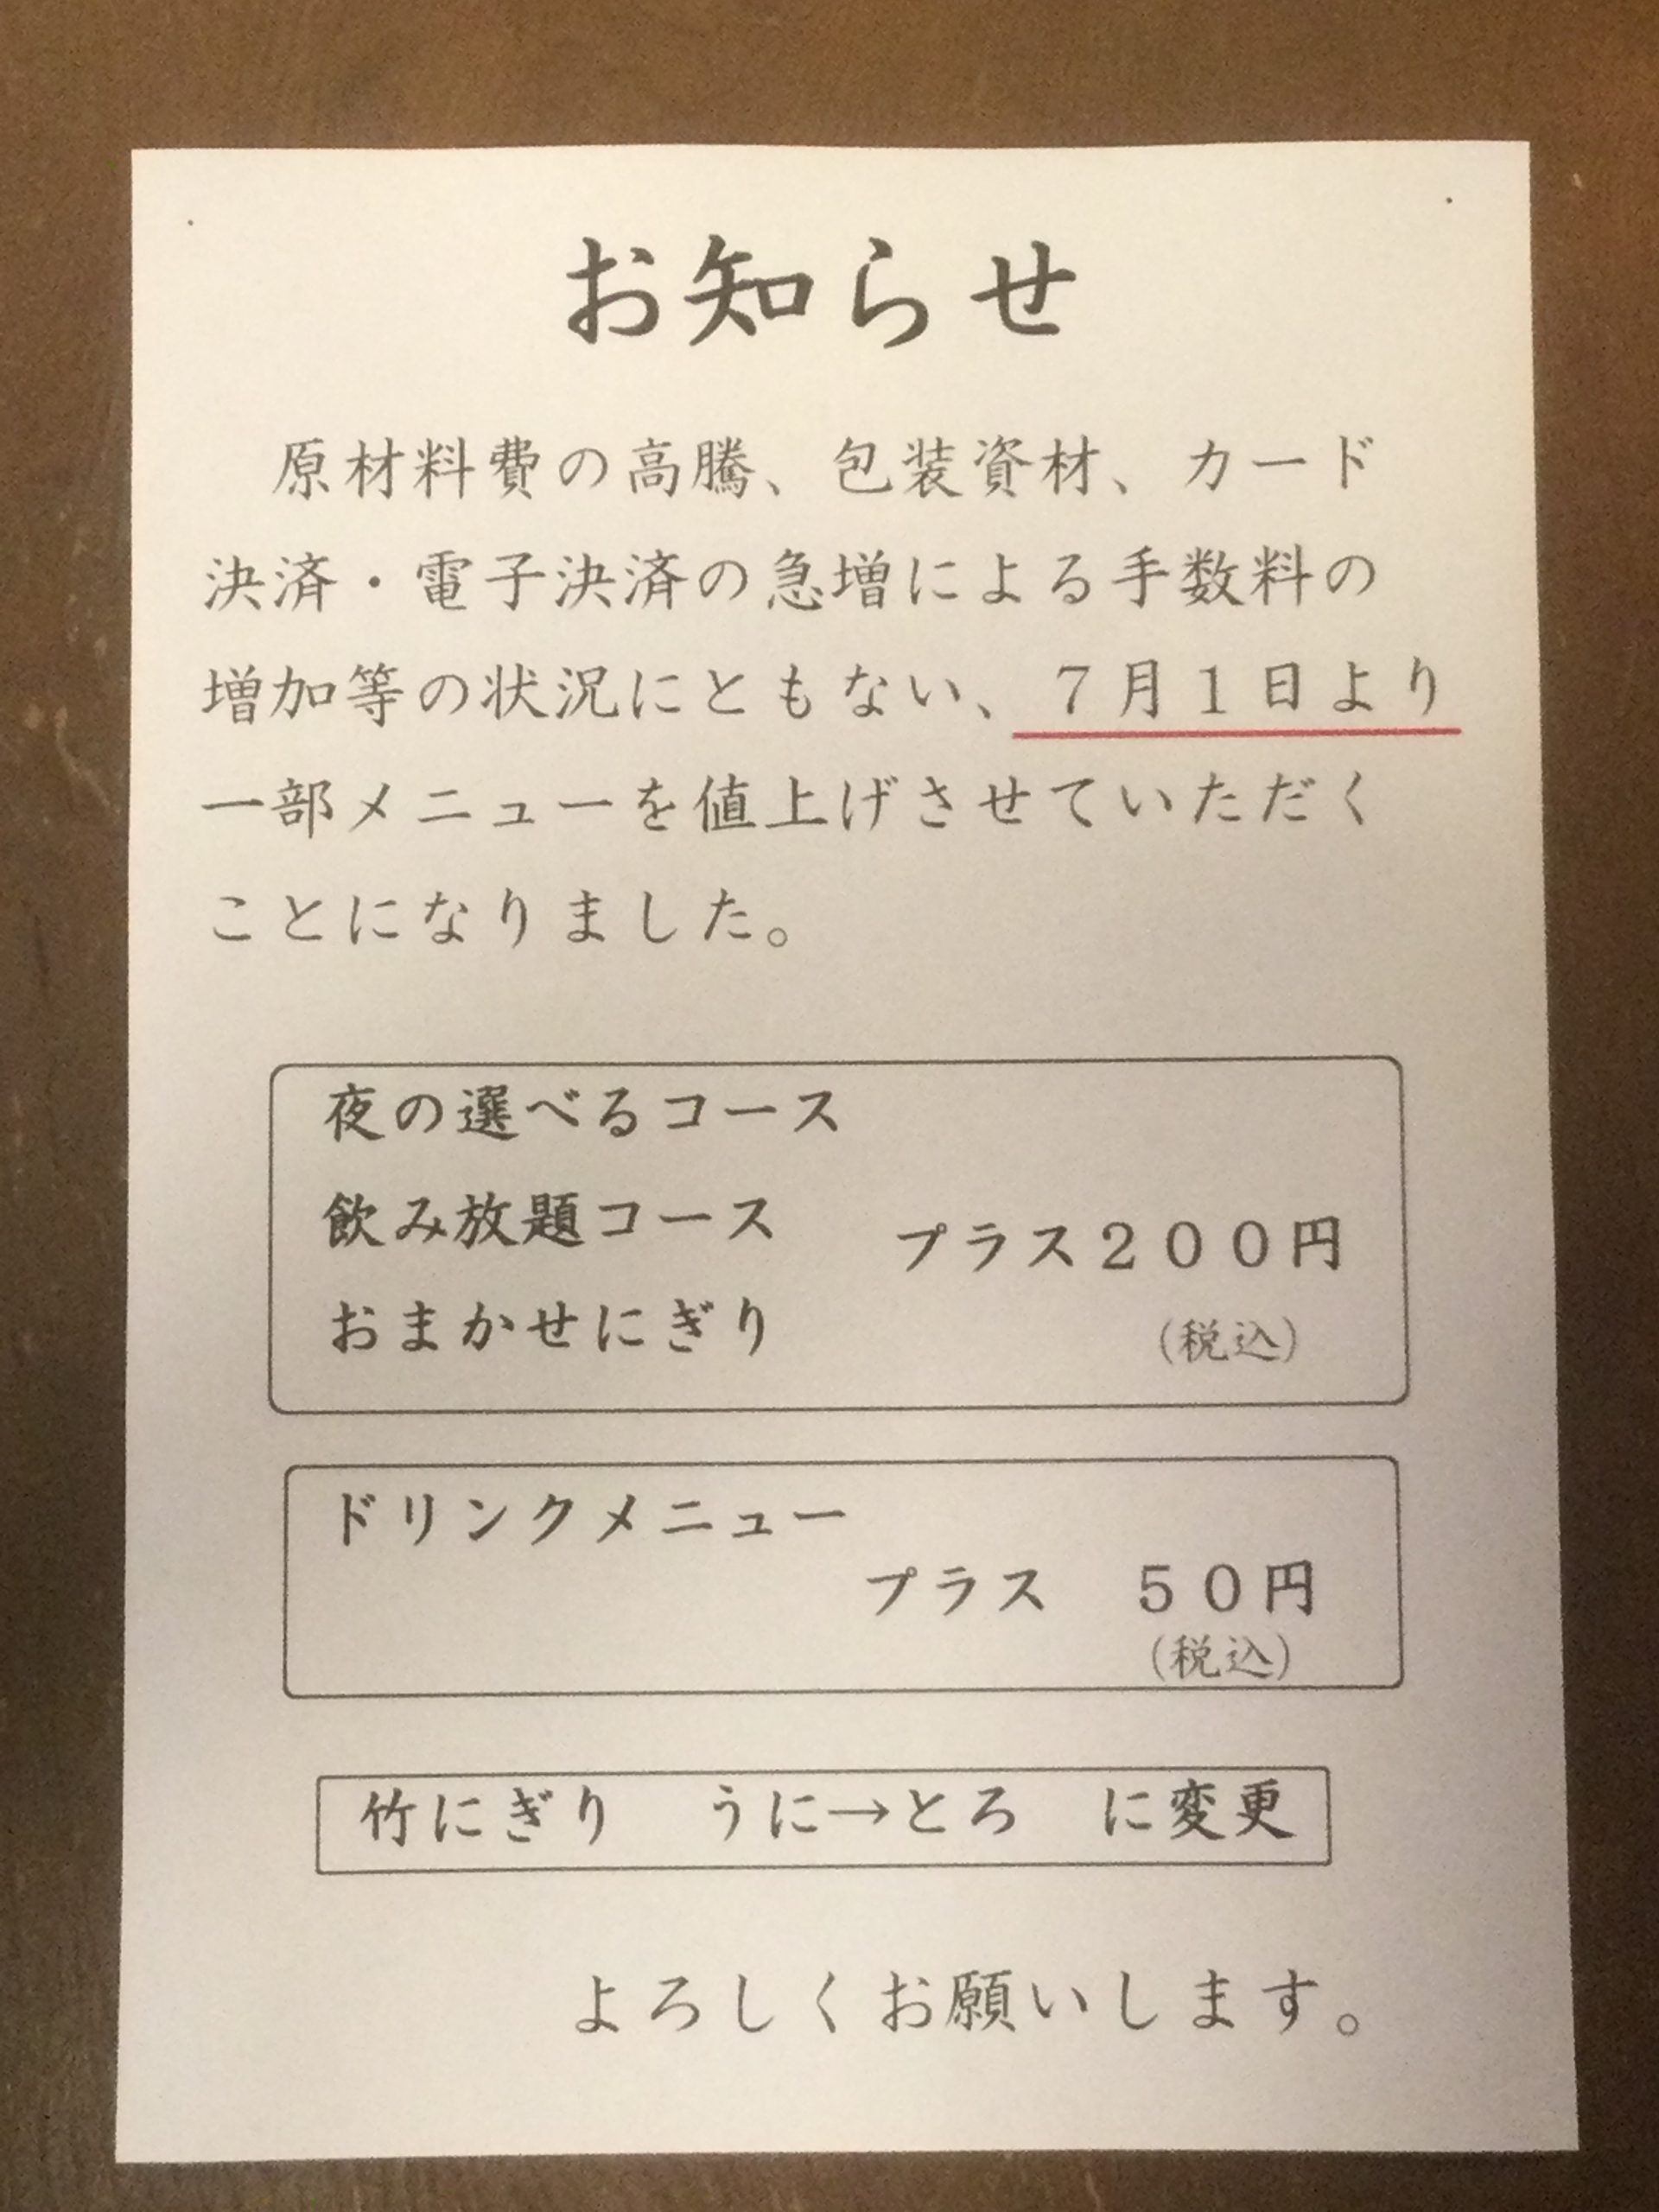 お知らせ
原材料費の高騰、包装資材、カード
決済・電子決済の急増による手数料の
増加等の状況にともない、７月１日より
一部メニューを値上げさせていただく
ことになりました。
夜の選べるコース
飲み放題コース
プラス２００円
おまかせにぎり
(税込)
ドリンクメニュー
プラス　５０円
(税込)
竹にぎり　うに→とろ　に変更
よろしくお願いします。